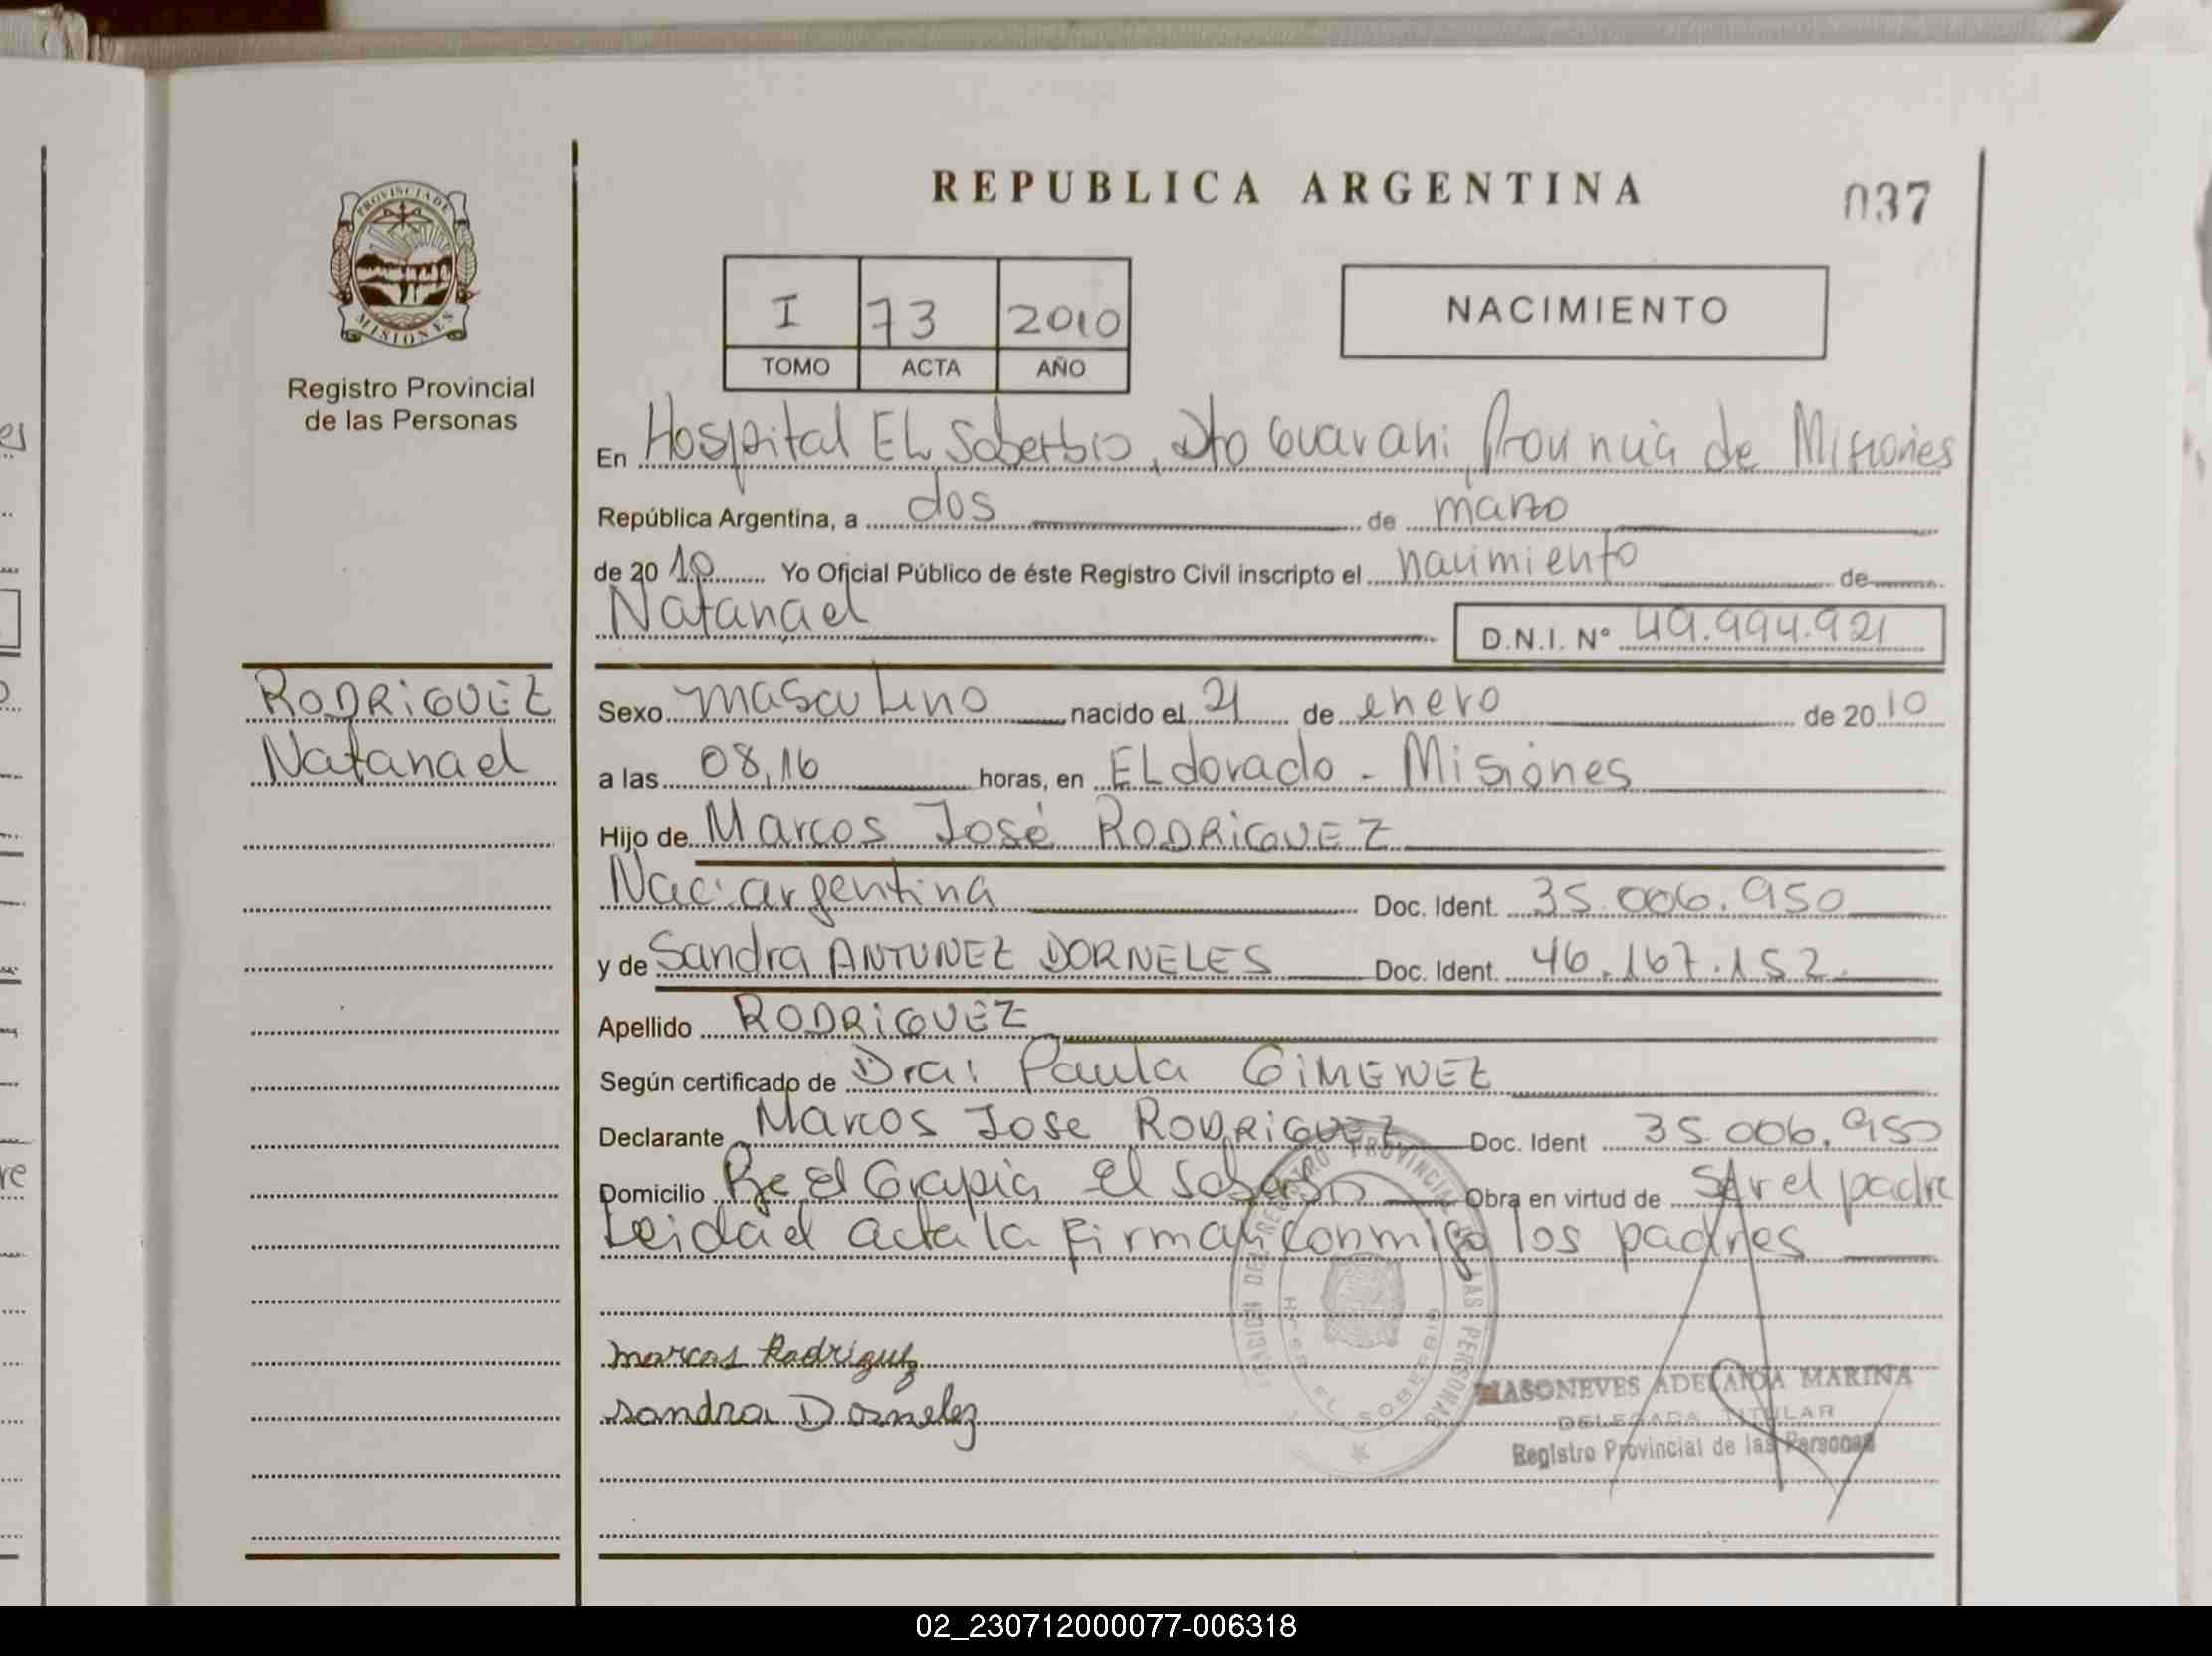 REPUBLICA ARGENTINA
037
PROVINCIA DE
MISIONES
Registro Provincial
de las Personas
I 73 2010
TOMO ACTA AÑO
NACIMIENTO
En Hospital EL Soberbio, Dto Guarani, Provincia de Misiones
República Argentina, a dos de marzo
de 2010 Yo Oficial Público de éste Registro Civil inscripto el nacimiento de
Natanael
D.N.I. Nº 49.994.921
RODRIGUEZ
Natanael
Sexo masculino nacido el 21 de enero de 2010
a las 08,16 horas, en ELdorado - Misiones
Hijo de Marcos José RODRIGUEZ
Nac: argentina Doc. Ident. 35.006.950
y de Sandra ANTUNEZ DORNELES Doc. Ident. 46.167.152
Apellido RODRIGUEZ
Según certificado de Dra: Paula GIMENEZ
Declarante Marcos Jose RODRIGUEZ Doc. Ident 35.006.950
Domicilio El Soberbio Obra en virtud de ser el padre
Leida el acta la firman conmigo los padres
marcos Rodriguez
sandra Dornelez
REGISTRO PROVINCIAL DE LAS PERSONAS
EL SOBERBIO
MASONEVES ADELAIDA MARINA
DELEGADA TITULAR
Registro Provincial de las Personas
02_230712000077-006318